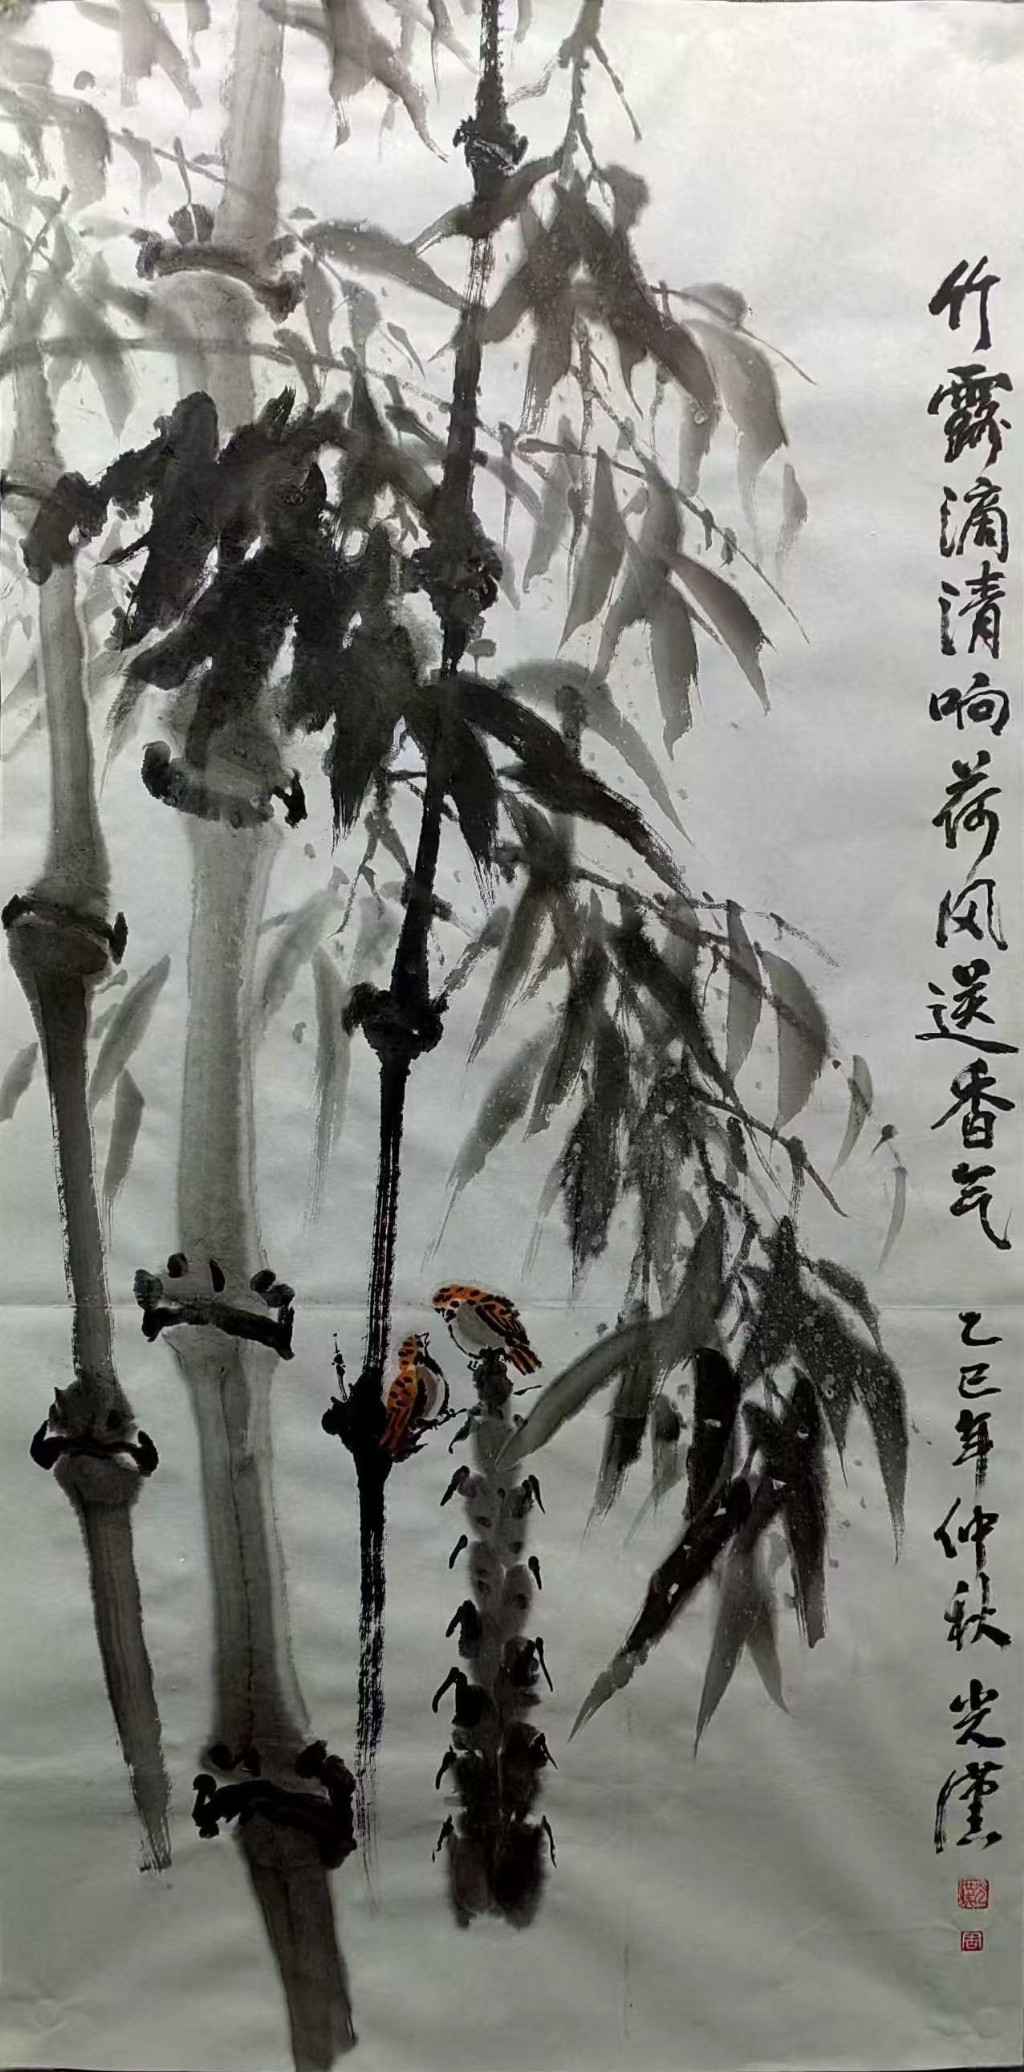 竹露滴清响荷风送香气
乙巳年仲秋 光汉